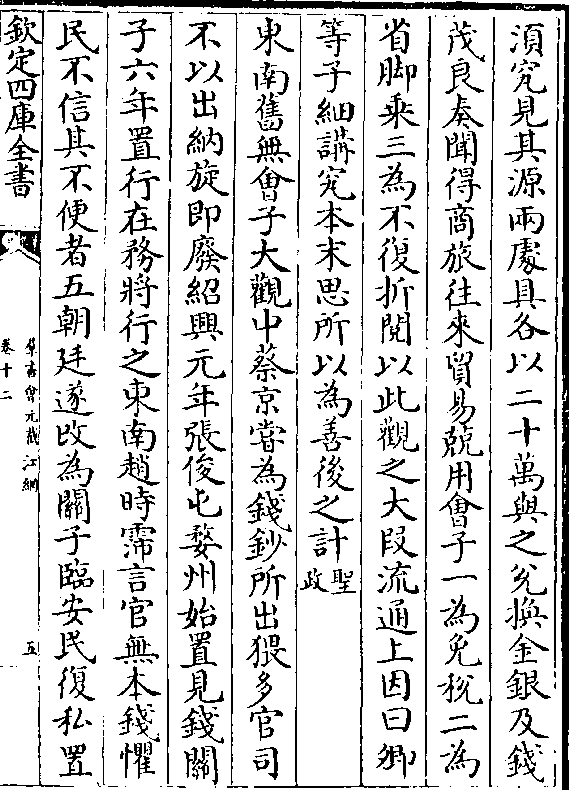 須究見其源兩處具各以二十萬與之兊換金銀及錢
茂良奏聞得商旅往來貿易競用會子一為免稅二為
省脚乘三為不復折閱以此觀之大段流通上因曰卿
等子細講究本末思所以為善後之計聖政
東南舊無會子大觀中蔡京嘗為錢鈔所出猥多官司
不以出納旋即廢紹興元年張俊屯婺州始置見錢關
子六年置行在務將行之東南趙時霈言官無本錢懼
民不信其不便者五朝廷遂改為關子臨安民復私置
欽定四庫全書
羣書會元截江網
卷十二
五